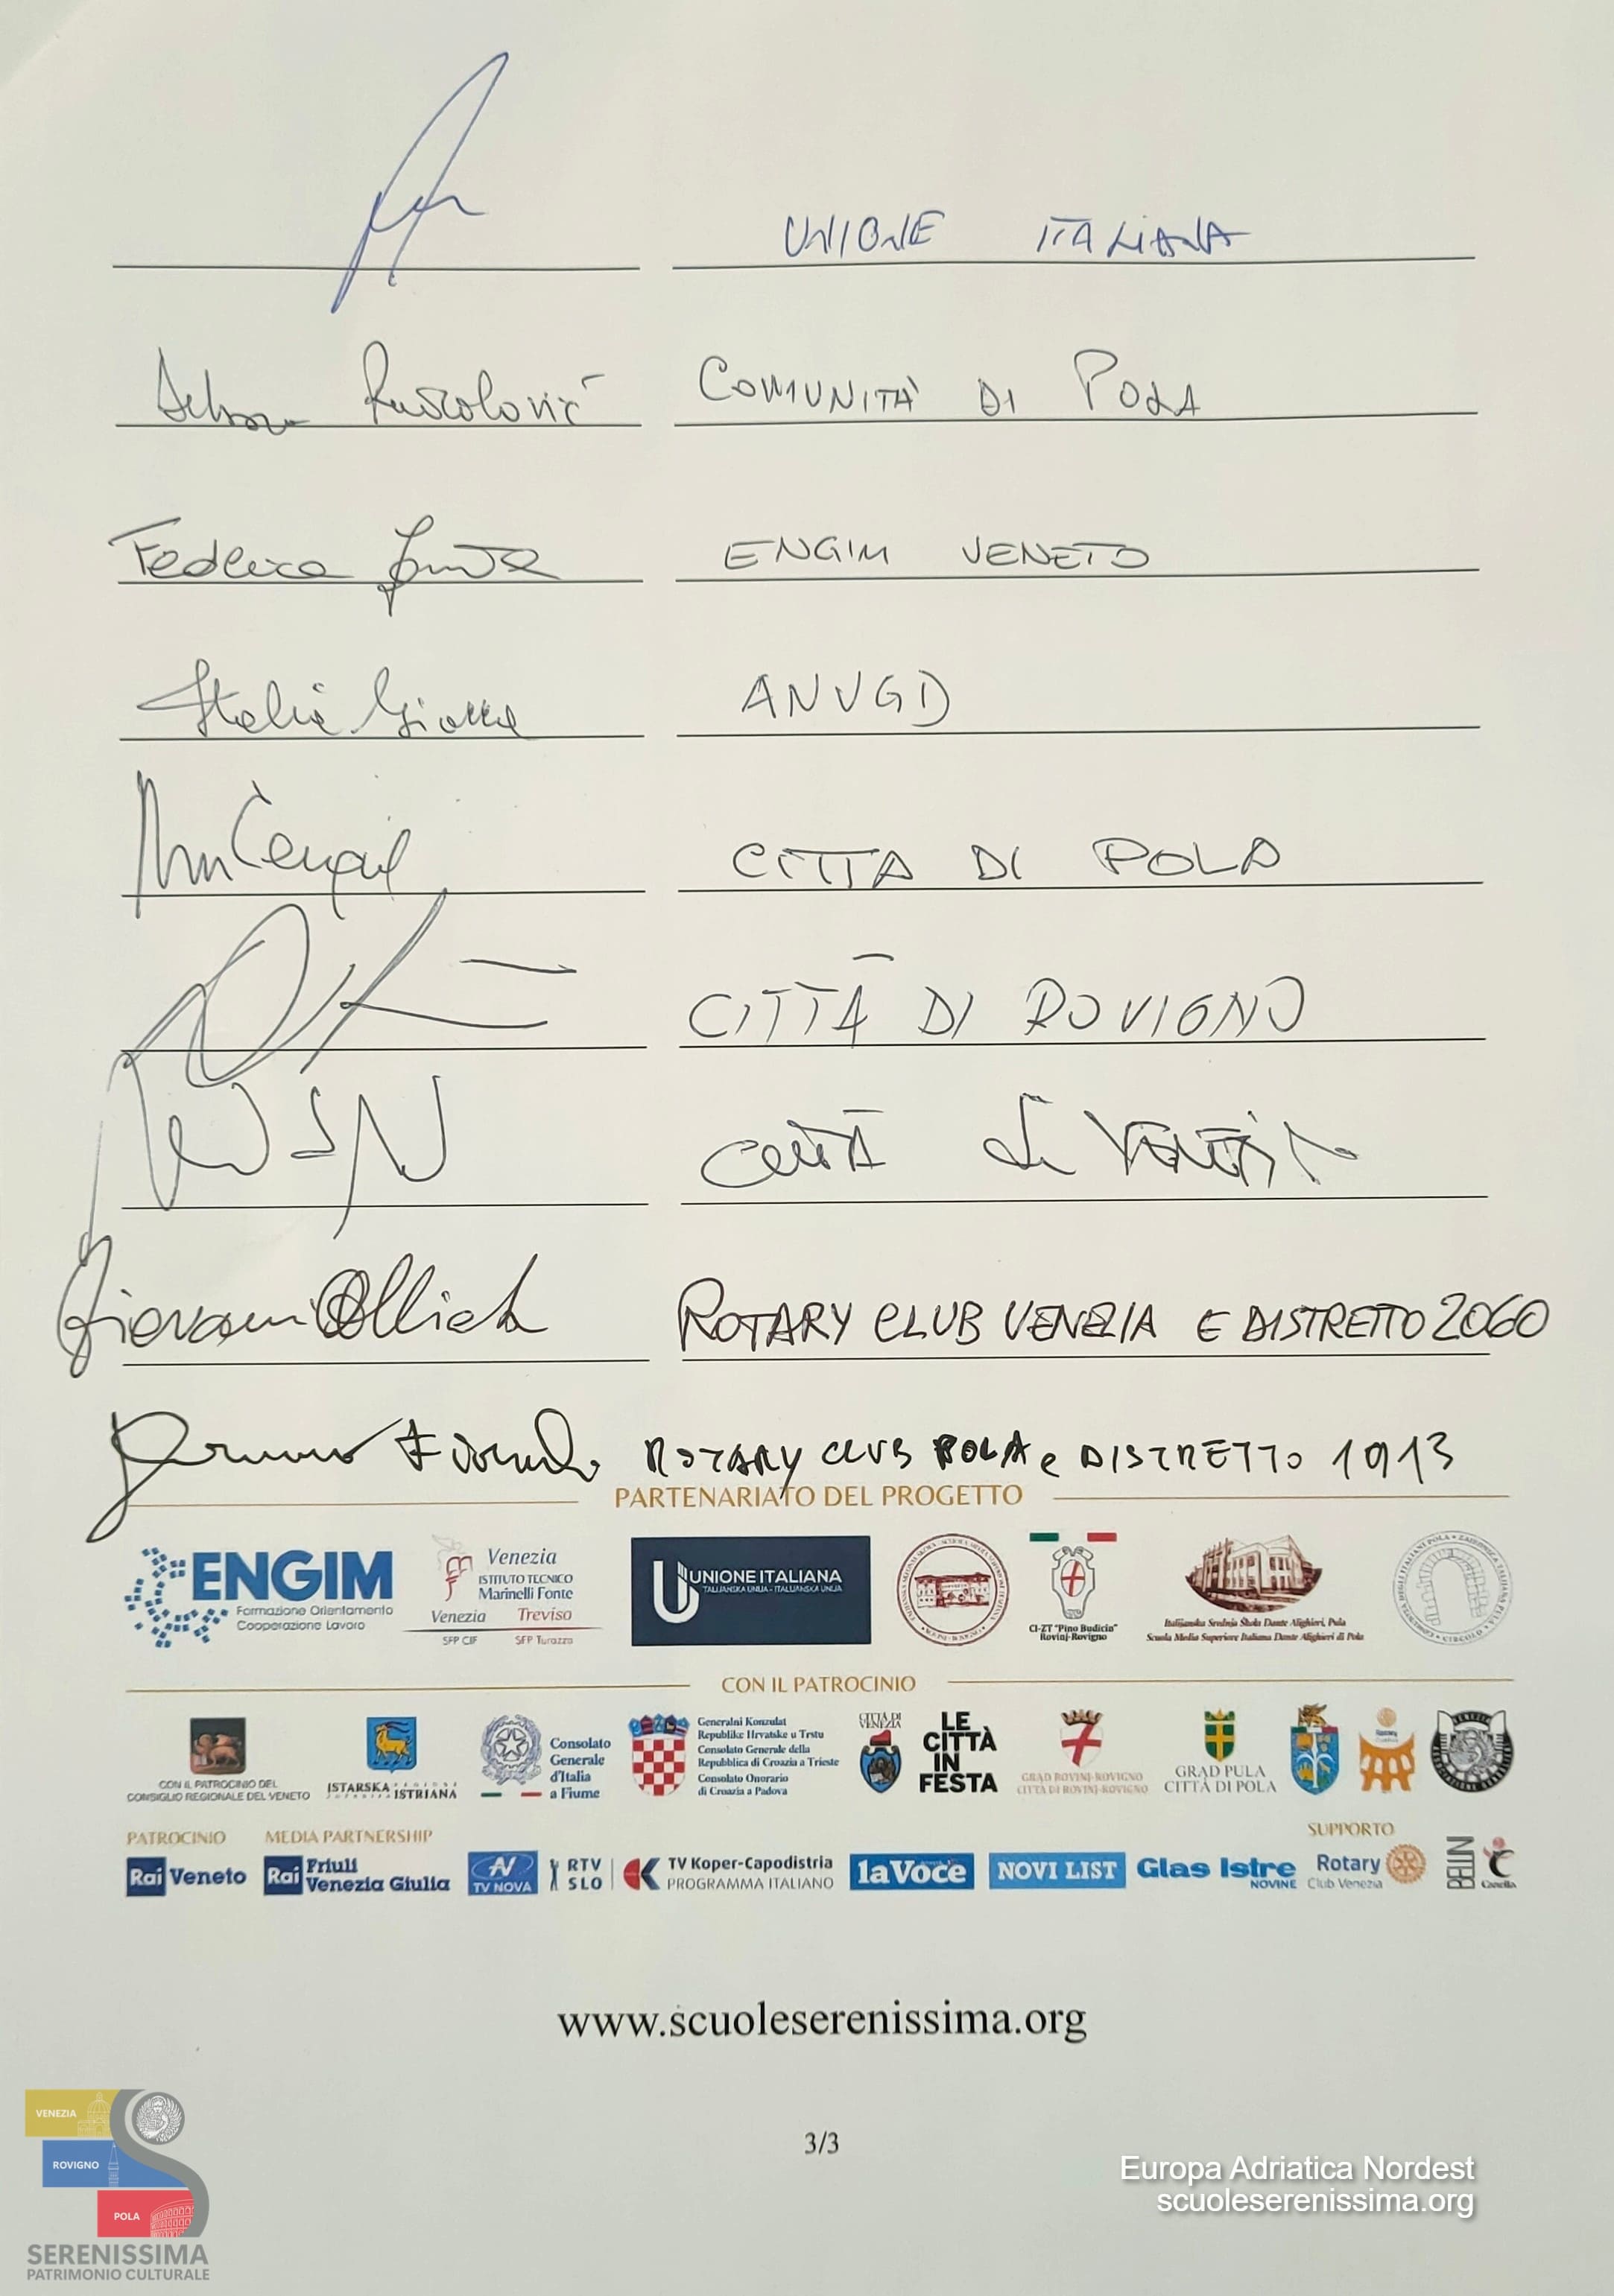 UNIONE ITALIANA
COMUNITÀ DI POLA
Federica ENGIM VENETO
Italia Giacca ANVGD
CITTA DI POLA
CITTÀ DI ROVIGNO
CITTÀ di VENEZIA
Giovanni ROTARY CLUB VENEZIA E DISTRETTO 2060
ROTARY CLUB POLA e DISTRETTO 1913
PARTENARIATO DEL PROGETTO
ENGIM
Formazione Orientamento
Cooperazione Lavoro
Venezia
ISTITUTO TECNICO
Marinelli Fonte
Venezia Treviso
SFP CIF SFP Turazza
UNIONE ITALIANA
TALIJANSKA UNIJA - ITALIJANSKA UNIJA
CI-ZT "Pino Budicin"
Rovinj-Rovigno
Italijanska Srednja Škola Dante Alighieri, Pula
Scuola Media Superiore Italiana Dante Alighieri di Pola
CON IL PATROCINIO
CON IL PATROCINIO DEL
CONSIGLIO REGIONALE DEL VENETO
ISTARSKA
ISTRIANA
Consolato
Generale
d'Italia
a Fiume
Generalni Konzulat
Republike Hrvatske u Trstu
Consolato Generale della
Repubblica di Croazia a Trieste
Consolato Onorario
di Croazia a Padova
CITTÀ DI
VENEZIA
LE
CITTÀ
IN
FESTA
GRAD ROVINJ-ROVIGNO
CITTÀ DI ROVINJ-ROVIGNO
GRAD PULA
CITTÀ DI POLA
PATROCINIO
MEDIA PARTNERSHIP
SUPPORTO
Rai Veneto
Rai Friuli
Venezia Giulia
TV NOVA
RTV
SLO
TV Koper-Capodistria
PROGRAMMA ITALIANO
laVoce
NOVI LIST
Glas Istre
NOVINE
Rotary
Club Venezia
BELLIN
Canella
www.scuoleserenissima.org
3/3
VENEZIA
ROVIGNO
POLA
SERENISSIMA
PATRIMONIO CULTURALE
Europa Adriatica Nordest
scuoleserenissima.org